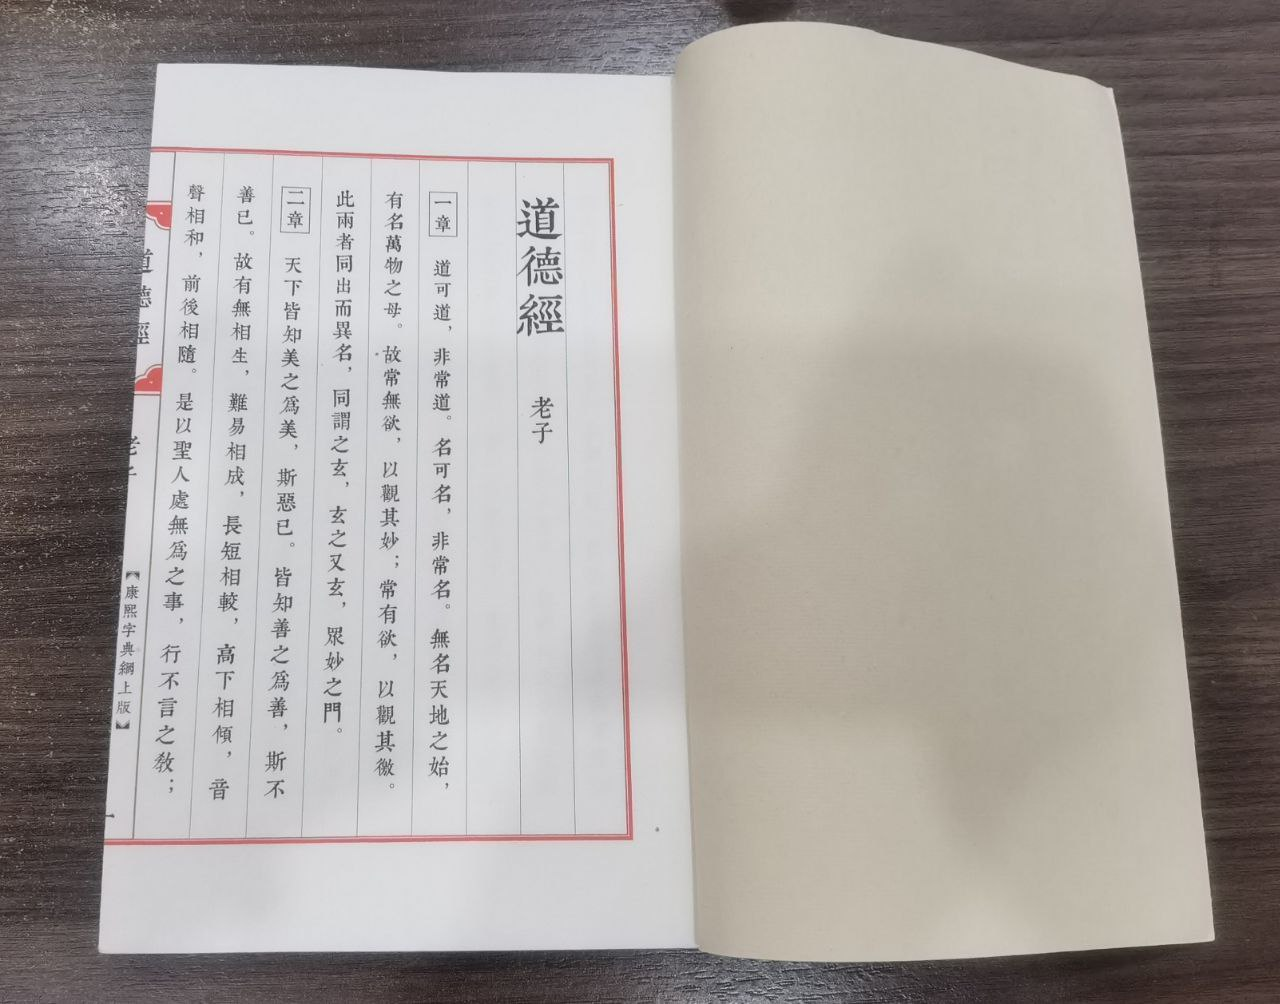 道德經 老子
一章 道可道，非常道。名可名，非常名。無名天地之始，
有名萬物之母。故常無欲，以觀其妙；常有欲，以觀其徼。
此兩者同出而異名，同謂之玄，玄之又玄，眾妙之門。
二章 天下皆知美之爲美，斯惡已。皆知善之爲善，斯不
善已。故有無相生，難易相成，長短相較，高下相傾，音
聲相和，前後相隨。是以聖人處無爲之事，行不言之教；
道德經 老子 【康熙字典網上版】 一